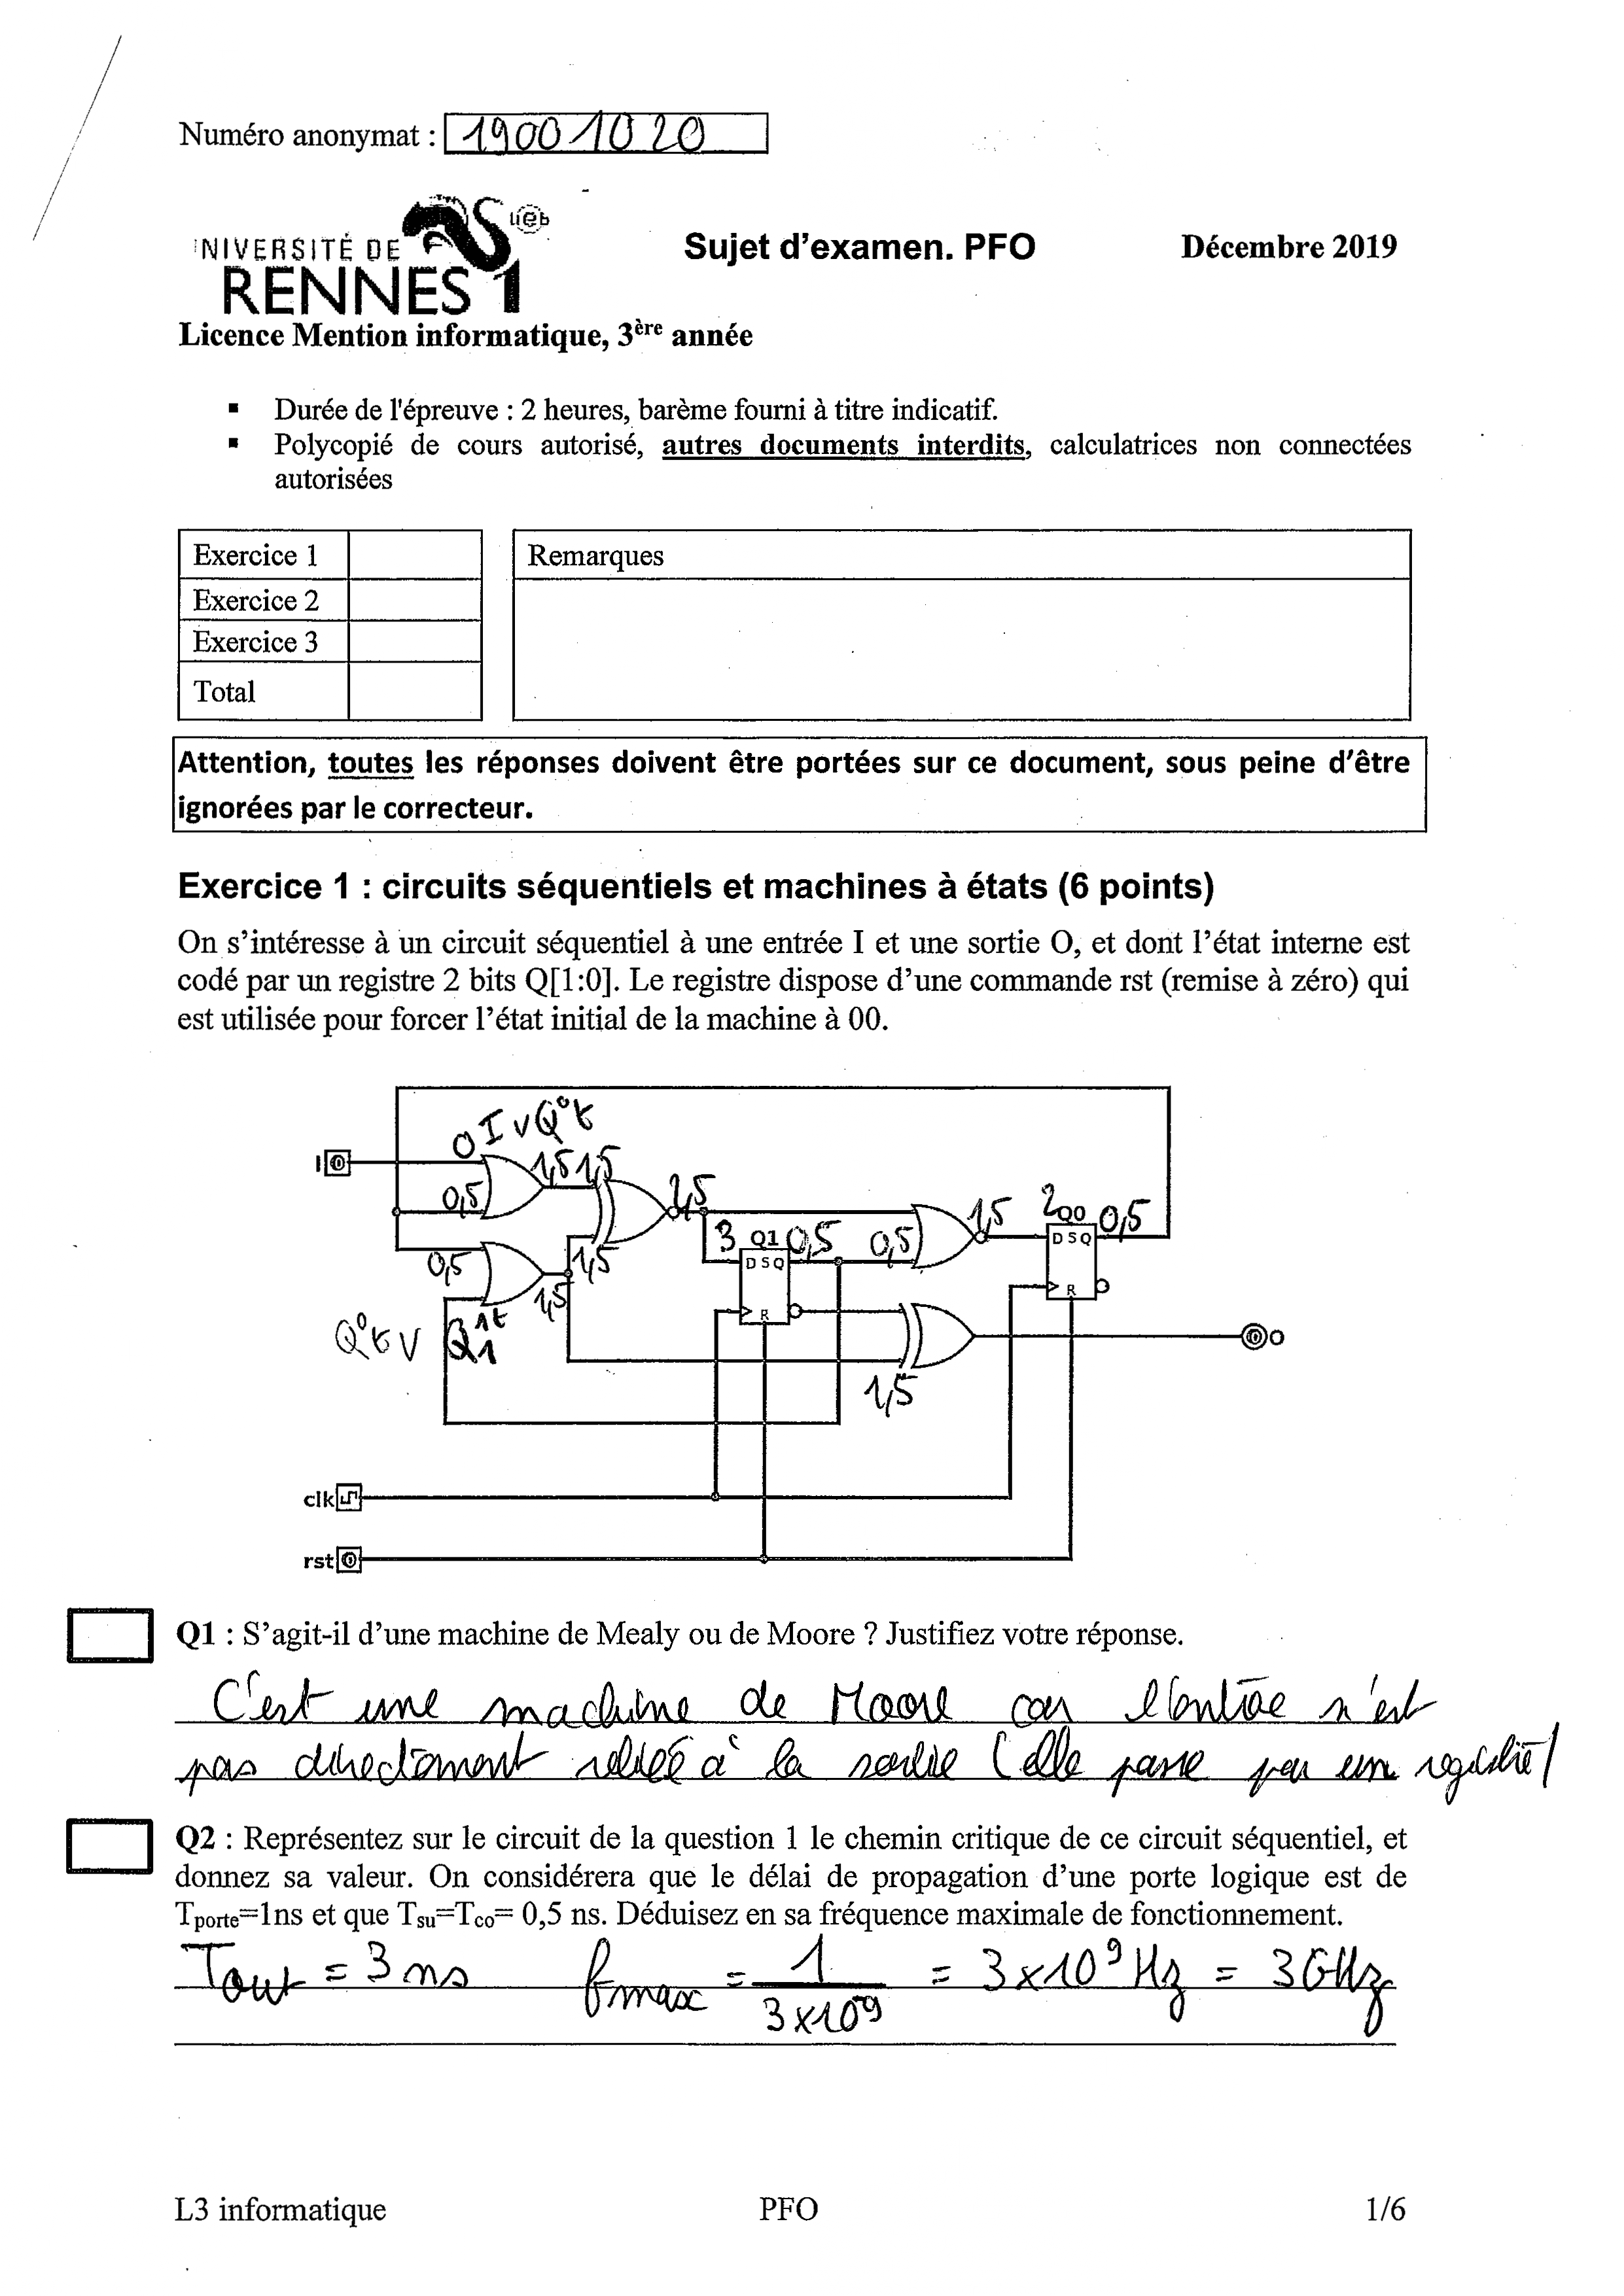 Numéro anonymat : 19001020
ueb
NIVERSITÉ DE
RENNES 1
Sujet d'examen. PFO
Décembre 2019
Licence Mention informatique, 3ère année
▪ Durée de l'épreuve : 2 heures, barème fourni à titre indicatif.
▪ Polycopié de cours autorisé, autres documents interdits, calculatrices non connectées
autorisées
Exercice 1
Exercice 2
Exercice 3
Total
Remarques
Attention, toutes les réponses doivent être portées sur ce document, sous peine d'être
ignorées par le correcteur.
Exercice 1 : circuits séquentiels et machines à états (6 points)
On s'intéresse à un circuit séquentiel à une entrée I et une sortie O, et dont l'état interne est
codé par un registre 2 bits Q[1:0]. Le registre dispose d'une commande rst (remise à zéro) qui
est utilisée pour forcer l'état initial de la machine à 00.
0 I v Q⁰t
I 0
1,5 1,5
0,5
2,5
1,5
2 Q0 0,5
D S Q
R
3 Q1 0,5
0,5
D S Q
R
0,5
1,5
1,5
Q⁰t v Q1
1t
0 O
1,5
clk
rst 0
Q1 : S'agit-il d'une machine de Mealy ou de Moore ? Justifiez votre réponse.
C'est une machine de Moore car l'entrée n'est
pas directement reliée à la sortie (elle passe par un registre)
Q2 : Représentez sur le circuit de la question 1 le chemin critique de ce circuit séquentiel, et
donnez sa valeur. On considérera que le délai de propagation d'une porte logique est de
Tporte=1ns et que Tsu=Tco= 0,5 ns. Déduisez en sa fréquence maximale de fonctionnement.
Tout = 3 ns fmax = 1 / 3x10⁻⁹ = 3x10⁹ Hz = 3GHz
L3 informatique
PFO
1/6